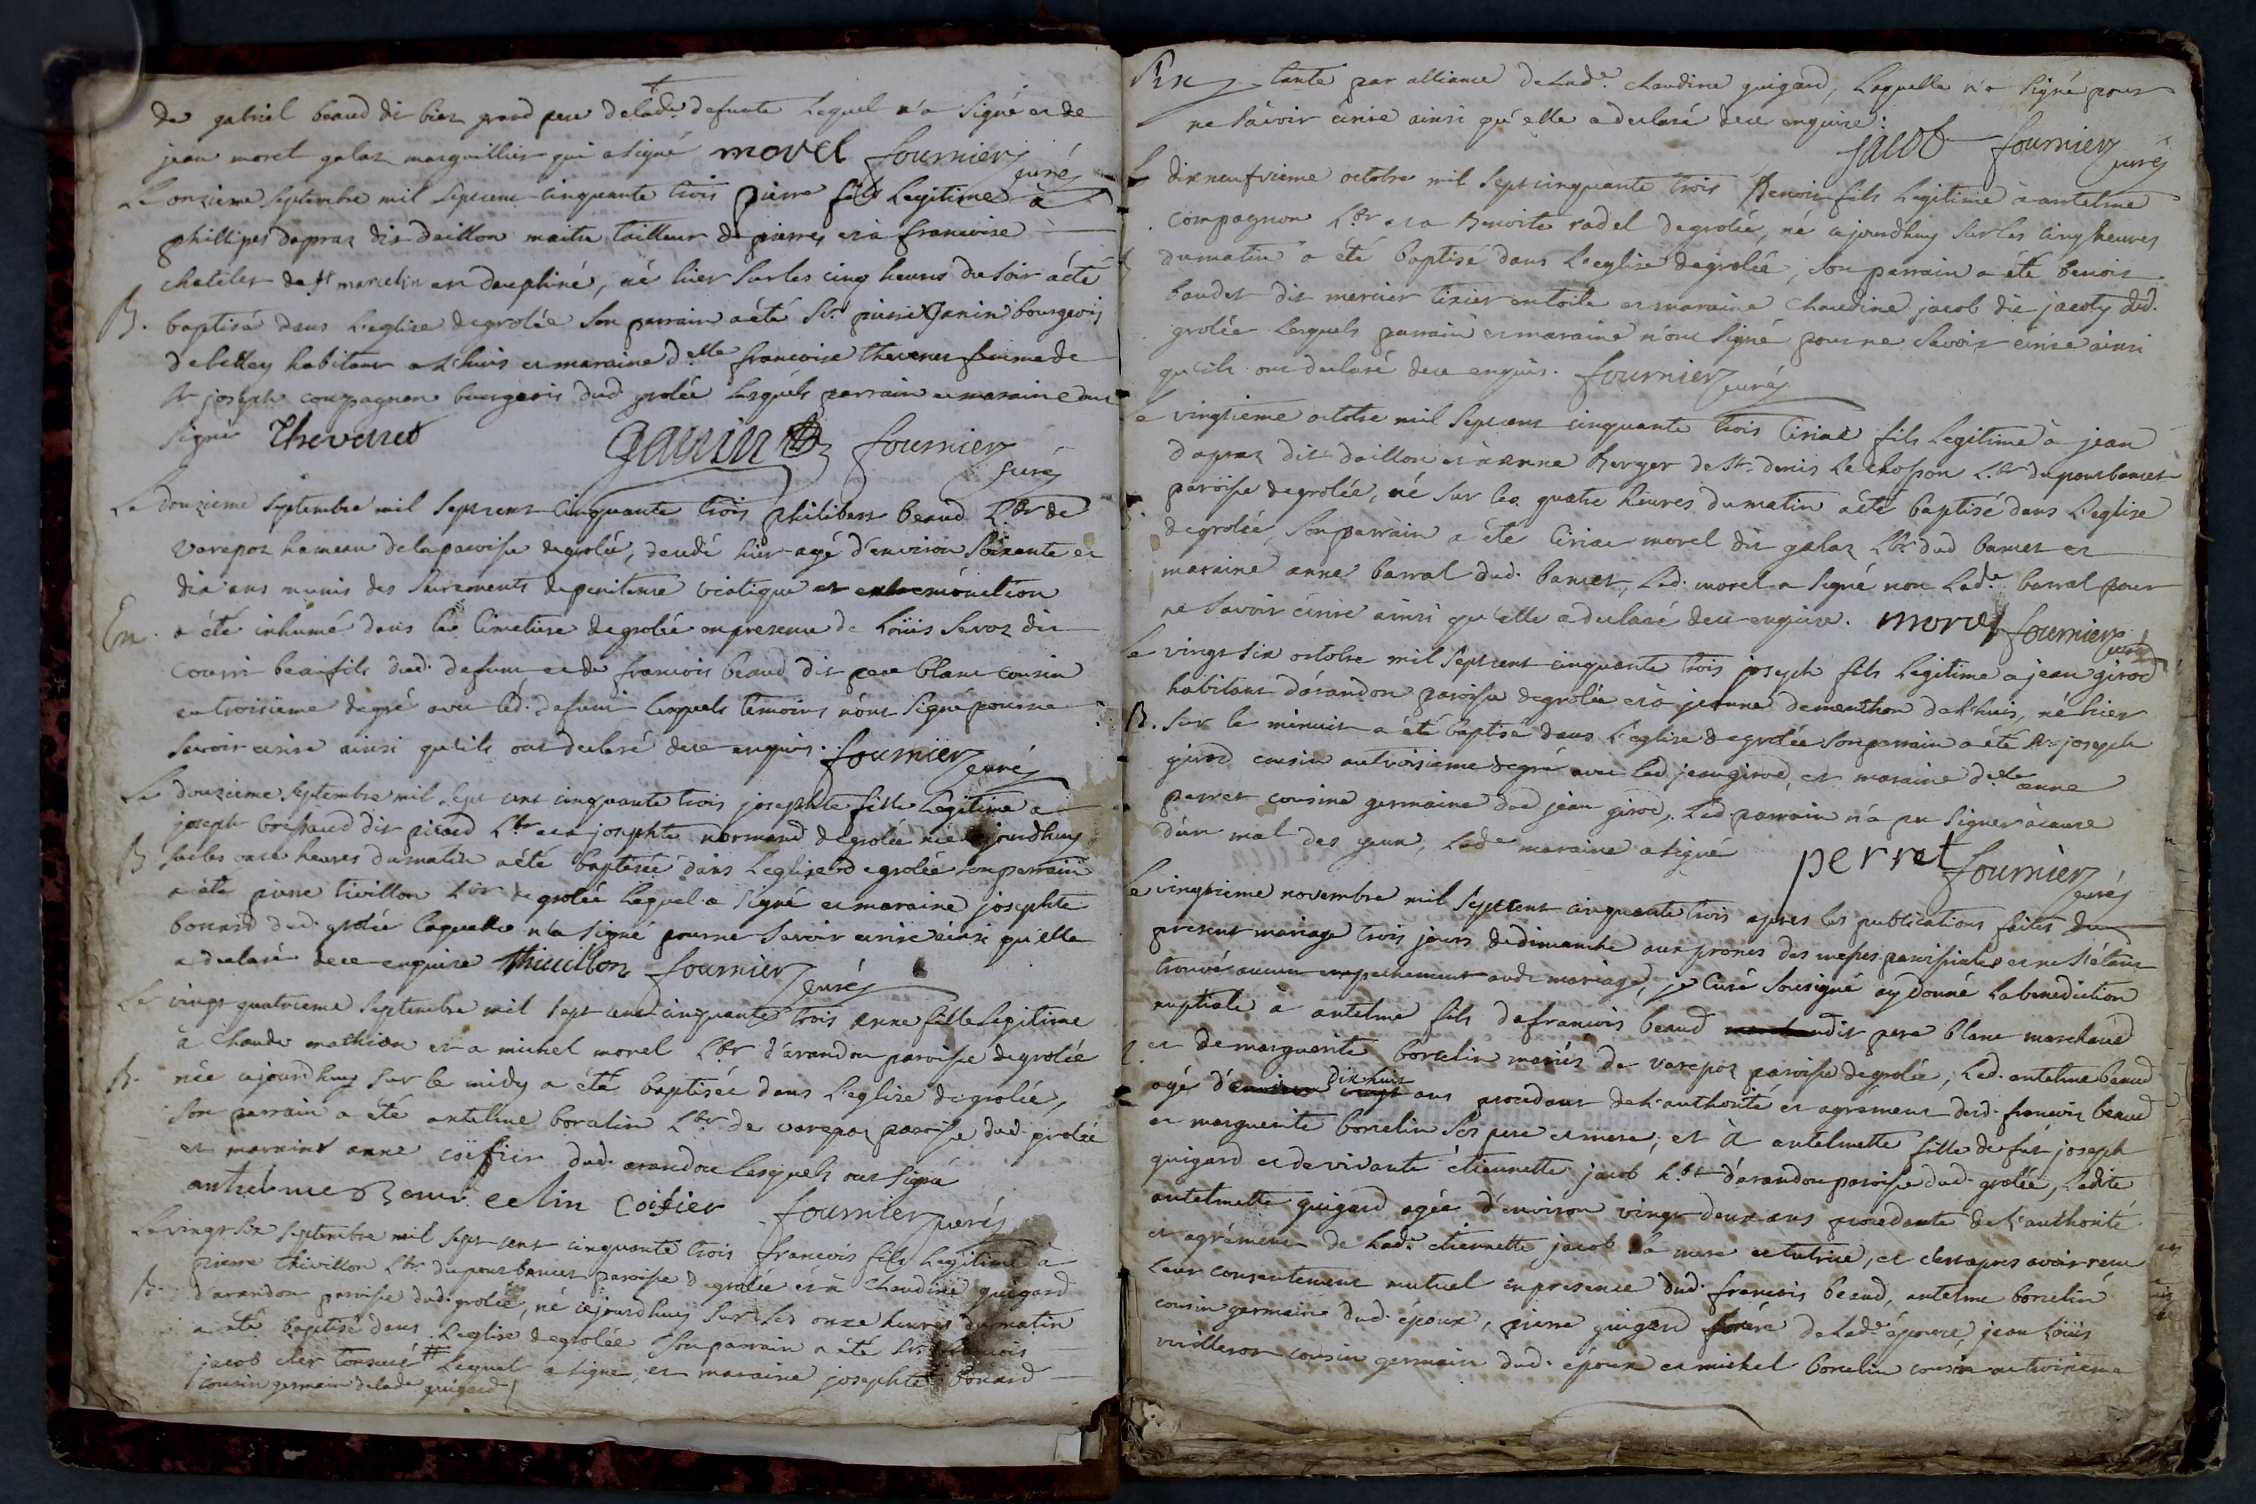 de gabriel beaud dit biez grand pere de lade defunte lequel n'a signé et de
jean morel galaz marguillier qui a signé morel fournier curé
Le onzieme septembre mil septcent cinquante trois pierre fils legitime à
phillipes dapraz dit daillon maitre tailleur de pierres et à francoise
chatelet de st marcelin en dauphiné, né hier sur les cinq heures du soir a été
B. baptisé dans l'eglise de grolée son parrain a été sr. pierre Janin bourgeois
de belley habitant a l'huis et maraine delle francoise thevenet femme de
sr joseph compagnon bourgeois dud grolée lesquels parrain et maraine ont
signé Thevenet Janin fournier curé
Le douzieme septembre mil septcent cinquante trois philibert beaud Lbr de
varepoz hameau de la paroisse de grolée, decedé hier agé d'environ soixante et
dix ans munis des sacrements de penitence viatique et extremonction
En. a été inhumé dans le cimetiere de grolée en presence de Loüis sevoz dit
courri beaufils dud. defunt et de francois beaud dit pere blanc cousin
au troisieme degré avec led. defunt lesquels temoins n'ont signé pour ne
savoir ecrire ainsi qu'ils ont declaré de ce enquis. fournier curé
Le douzieme septembre mil sept cent cinquante trois josephte fille legitime a
joseph brissaud dit picard Lbr et a josephte normand de grolée née ajourdhuy
B sur les onze heures du matin a été baptisée dans l'eglise de grolée son parrain
a été pierre tivillon Lbr de grolée lequel a signé et maraine josephte
bonard dud. grolée laquelle n'a signé pour ne savoir ecrire ainsi qu'elle
a declaré de ce enquise thivillon fournier curé
Le vingt quatrieme septembre mil sept cent cinquante trois anne fille legitime
à claude mathieu et a michel morel Lbr d'arandon paroisse de grolée
B. née ajourdhuy sur le midy a été baptisée dans l'eglise de grolée,
son parrain a été antelme borcelin Lbr de varepoz paroisse dud. grolée
et maraine anne coïfier dud. arandon lesquels ont signé
anthelme Bourcelin Coifier fournier curé
Le vingt six septembre mil sept cent cinquante trois francois fils legitime à
pierre thivillon Lbr du port bancet paroisse de grolée et à Claudine guigard
B. d'arandon paroisse dud. grolée, né cejourdhuy sur les onze heures du matin
a été baptisé dans l'eglise de grolée son parrain a été sr. francois
jacob cler tonsuré # lequel a signé, et maraine josephte bonard
(cousin germain de lade guigard)
tante par alliance de lade. claudine guigard, laquelle n'a signé pour
ne sàvoir ecrire ainsi qu'elle a declaré de ce enquise. jacob fournier curé
Le dixneufvieme octobre mil sept cinquante trois Benoit fils legitime à antelme
compagnon Lbr et a Benoite radel de grolée, né cejourdhuy sur les cinq heures
B du matin a été baptisé dans l'eglise de grolée, son parrain a été benoit
baudet dit mercier tixier en toile et maraine claudine jacob dit jacoty dud.
grolée lesquels parrain et maraine n'ont signé pour ne savoir ecrire ainsi
qu'ils ont declaré de ce enquis. fournier curé
Le vingtieme octobre mil septcent cinquante trois Ciriac fils legitime à jean
dapraz dit daillon et à anne Berger de st. denis le chosson Lbr du port bancet
paroisse de grolée, né sur les quatre heures du matin a été baptisé dans l'eglise
de grolée, son parrain a été Ciriac morel dit galaz Lbr dud bancet et
maraine anne barral dud. bancet, led. morel a signé non lade. barral pour
ne savoir ecrire ainsi qu'elle a declaré de ce enquise. morel fournier curé
Le vingt six octobre mil septcent cinquante trois joseph fils legitime a jean girod
habitant d'arandon paroisse de grolée et à jeanne dementhon de l'huis, né hier
B. sur le minuit a été baptisé dans l'eglise de grolée son parrain a été sr joseph
girod cousin au troisieme degré avec led. jean girod, et maraine delle anne
perret cousine germaine dud jean girod, led parrain n'a pu signer à cause
d'un mal des yeux, lade maraine a signé perret fournier curé
Le vingtieme novembre mil septcent cinquante trois apres les publications faites du
present mariage trois jours de dimanche aux prones des messes paroissiales et ne s'étant
trouvé aucun empechement aud. mariage, je Curé sousigné ay donné la benediction
nuptiale à antelme fils de francois beaud dit pere blanc marchand
et de marguerite borcelin mariés de varepoz paroisse de grolée, led. antelme beaud
agé d'environ dixhuit ans procedant de l'authorité et agrement dud. francois beaud
et marguerite borcelin ses pere et mere, et à antelmette fille de fut joseph
guigard et de vivante étiennette jacob Lbr d'arandon paroisse dud. grolée, ladite
antelmette guigard agée d'environ vingt deux ans procedante de l'authorité
et agrément de lade. etiennette jacob sa mere et tutrice, et c'est apres avoir recu
leur consentement mutuel en presence dud. francois beaud, antelme borcelin
cousin germain dud. époux, pierre guigard frere de lade. épouse, jean loüis
vuilleroz cousin germain dud. époux et michel borcelin cousin au troisieme